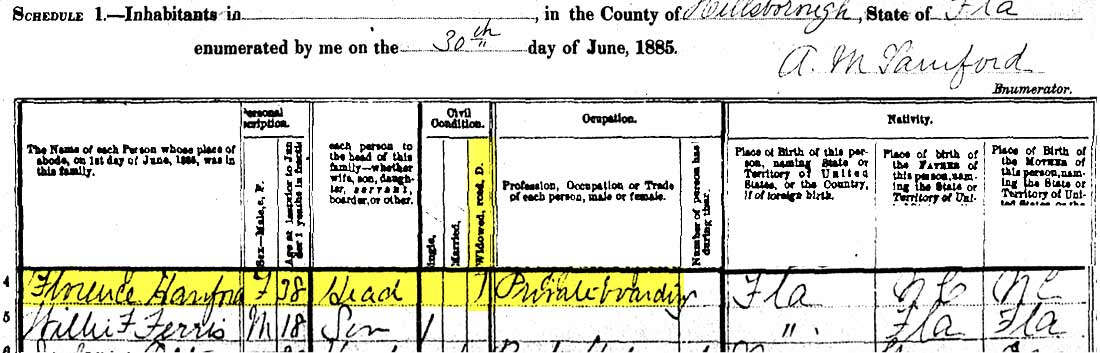 SCHEDULE 1.—Inhabitants in, in the County of Hillsborough, State of Fla
enumerated by me on the 30th day of June, 1885.
A. M
Enumerator.
Personal Description.
Civil Condition.
Ocupation.
Nativity.
The Name of each Person whose place of abode, on 1st day of June, 1885, was in this family.
Sex—Male, F.
Age at last prior to
each person to the head of this family—whether wife, son, daughter, servant, boarder, or other.
Single,
Married,
Widowed, D.
Profession, Occupation or Trade of each person, male or female.
Number of person has during
Place of Birth of this person, naming State or Territory of United States, or the Country, if of foreign birth.
Place of birth of the FATHER of this person, naming the State or Territory of Uni-
Place of Birth of the MOTHER of this person, naming the State or Territory of Uni-
4 Florence F 38 Head Private boarding Fla NC NC
5 Willie F Ferris M 18 Son 1 " Fla Fla